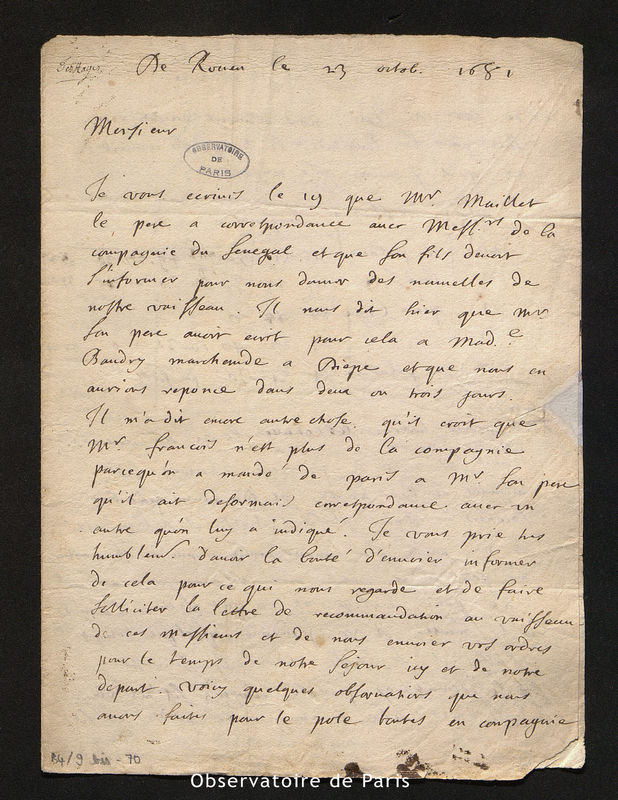 Des Hayes.
De Rouen le 23 octob. 1681
Monsieur
OBSERVATOIRE
DE
PARIS
Je vous ecrivis le 19 que Mr. Maillet
le pere a correspondance avec Messrs de la
compagnie du Senegal et que son fils devoit
s'informer pour nous donner des nouvelles de
nostre vaisseau. Il nous dit hier que mr.
son pere avoit ecrit pour cela a Mad.e
Baudry marchande a Diepe et que nous en
aurions reponce dans deux ou trois jours.
Il m'a dit encore autre chose qu'il croit que
Mr. francois n'est plus de la compagnie
parcequ'on a mandé de paris a Mr son pere
qu'il ait desormais correspondance avec un
autre qu'on luy a indiqué. Je vous prie tres
humblemt. d'avoir la bonté d'envoier informer
de cela pour ce qui nous regarde et de faire
solliciter la lettre de recommandation au vaisseau
de ces messieurs et de nous envoier vos ordres
pour le temps de notre sejour icy et de notre
depart. voicy quelques observations que nous
avons faites pour le pole toutes en compagnie
B4/9 bis - 70
Observatoire de Paris